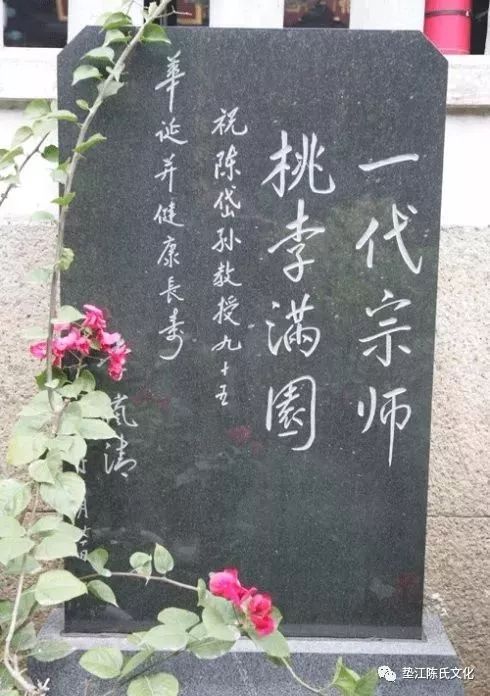 一代宗师
桃李满園
祝陈岱孙教授九十五
華诞并健康長寿
岚清
垫江陈氏文化